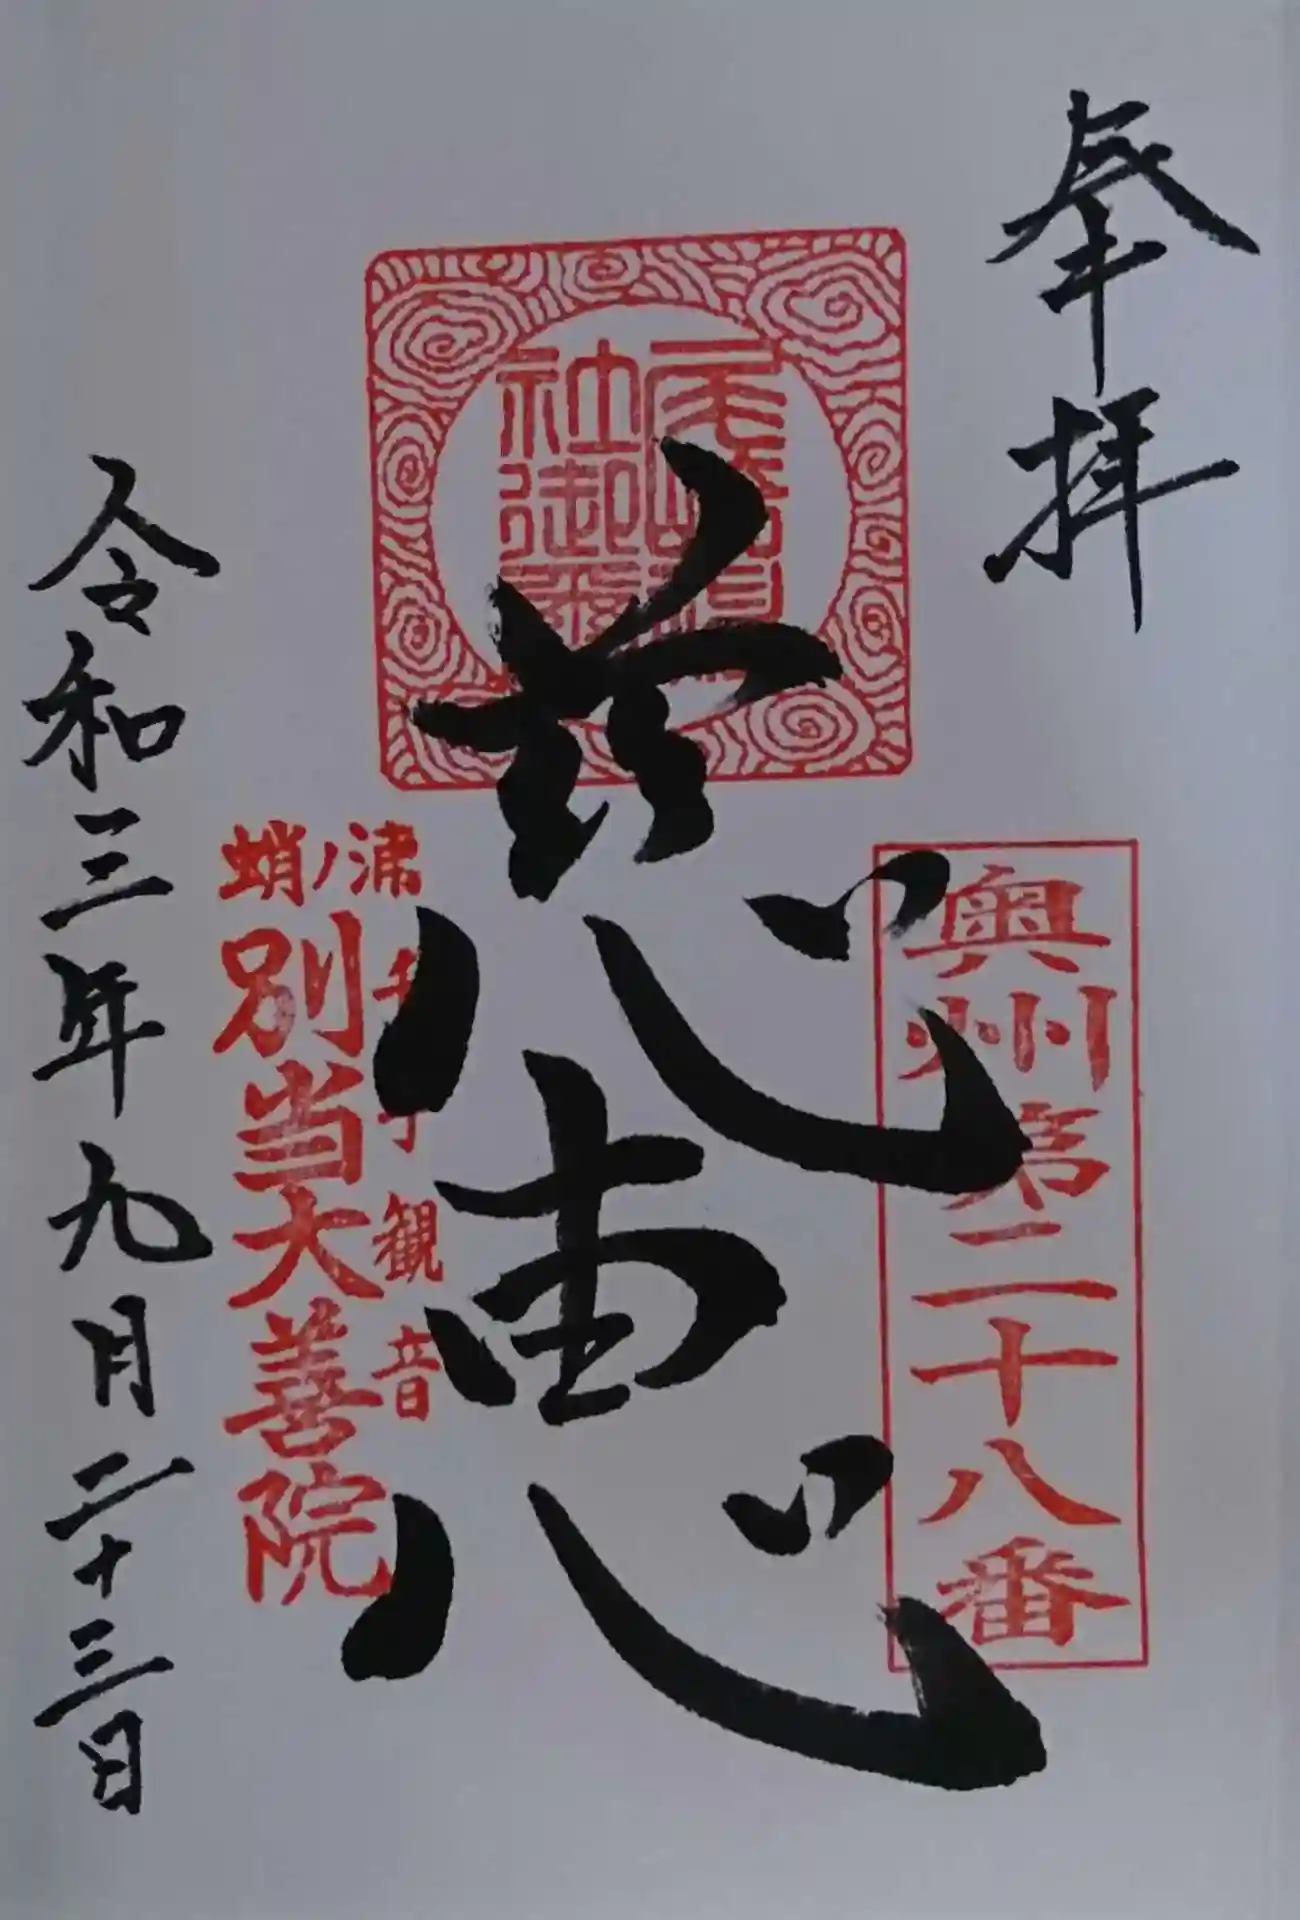 奉拝
奥州第二十八番
慈恵
蛸ノ浦
千手観音
別当大善院
令和三年九月二十三日